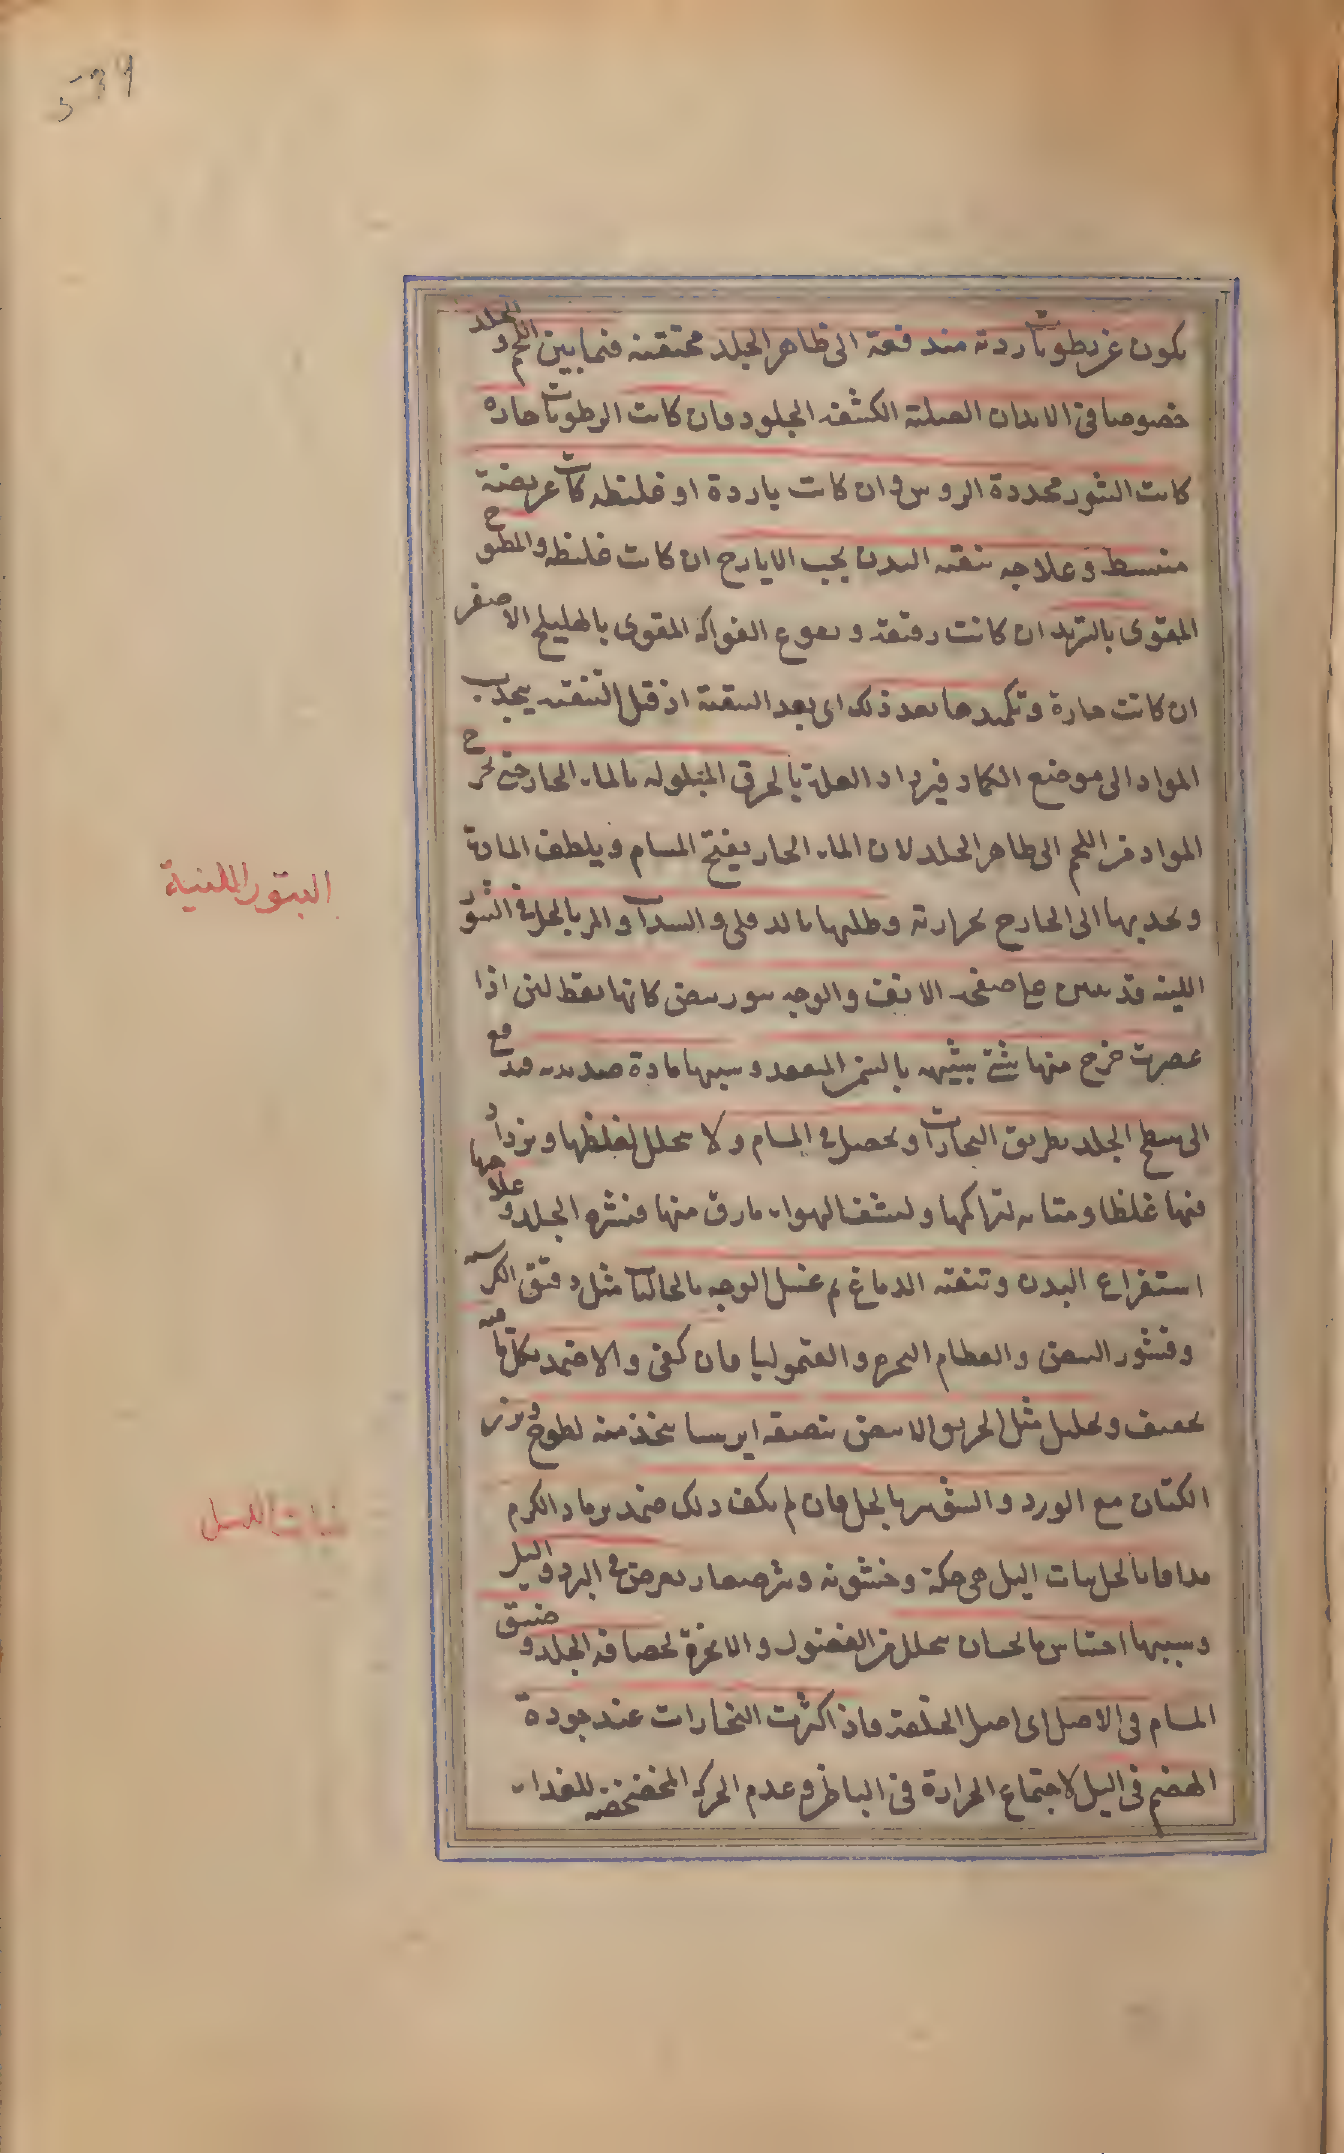 539
يكون عن رطوبات ردية مندفعة الى ظاهر الجلد محتقنة فيما بين اللحم و الجلد
خصوصا فى الابدان الصلبة الكثيفة الجلود فان كانت الرطوبات حاره
كانت البثور محددة الروس و ان كانت باردة او غليظه كانت عريضة
منبسطة و علاجه تنقية البدن بحب الايارج ان كانت غليظه و المطبوخ
المقوى بالتربد ان كانت رقيقة و نقوع الفواكه المقوى بالهليلج الاصفر
ان كانت حارة و تكميدها بعد ذلك اى بعد التنقية اذ قبل التنقيه يجذب
المواد الى موضع الكماد فيزداد العلة بالخرق المبلوله بالماء الحار حتى يخرج
المواد من اللحم الى ظاهر الجلد لان الماء الحار يفتح المسام و يلطف المادة
و يجذبها الى الخارج بحرارته و طليها بالدفلى و السداب و المر بالخل فى البثور
البثور اللبنية
اللبنيه قد يظهر على صفحة الانف و الوجه بثور بيض كانها نقط لبن اذا
عصرت خرج منها شئ شبيه بالسمن المنعقد و سببها مادة صديديه تندفع
الى سطح الجلد بطريق البخارات و يحصل فى المسام و لا يتحلل لغلظها و يزداد
فيها غلظا و متانه لتراكمها و لنشف الهواء ما رق منها فتنشره الجلد و علاجها
استفراغ البدن و تنقيه الدماغ ثم غسل الوجه بالجاليات مثل دقيق الكرسنه
و قشور البيض و العظام النخره و القيموليا فان كفى و الا ضمد بكل ما فيه
تجفيف و تحليل مثل الخربق الابيض بنصفه ايرسا يتخذ منه لطوخ و بزر
الكتان مع الورد و البثور بالخل فان لم يكف ذلك ضمد برماد الكرم
بنات الليل
مدافا بالخل بنات اليل هى حكة و خشونه و بثر صغار يعرض فى البرد و اليل
و سببها احتباس ما يجب ان يتحلل من الفضول و الابخرة لحصافة الجلد و ضيق
المسام فى الاصل اى اصل الخلقة فاذا كثرت البخارات عند جودة
الهضم فى اليل لاجتماع الحرارة فى الباطن و عدم الحركه المخضخضة للغداء